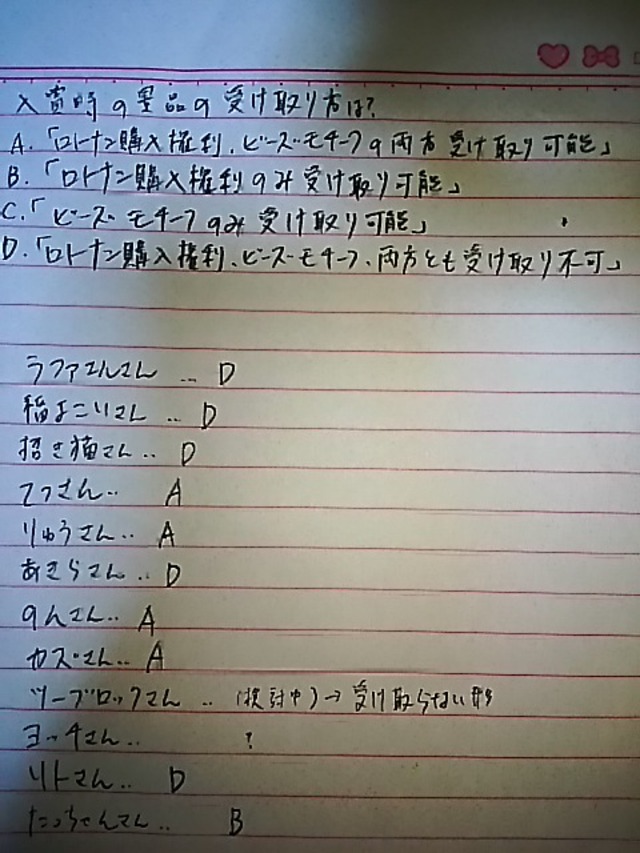 入賞時の景品の受け取り方は?
A.「ロトナン購入権利、ビーズモチーフの両方受け取り可能」
B.「ロトナン購入権利のみ受け取り可能」
C.「ビーズモチーフのみ受け取り可能」
D.「ロトナン購入権利、ビーズモチーフ、両方とも受け取り不可」
ラファエルさん … D
稲よこいさん .. D
招き猫さん .. D
てっさん.. A
りゅうさん.. A
あきらさん.. D
のんさん.. A
カズさん.. A
ツーブロックさん .. (検討中)→受け取らない形
ヨッチさん.. ?
リトさん.. D
たっちゃんさん.. B